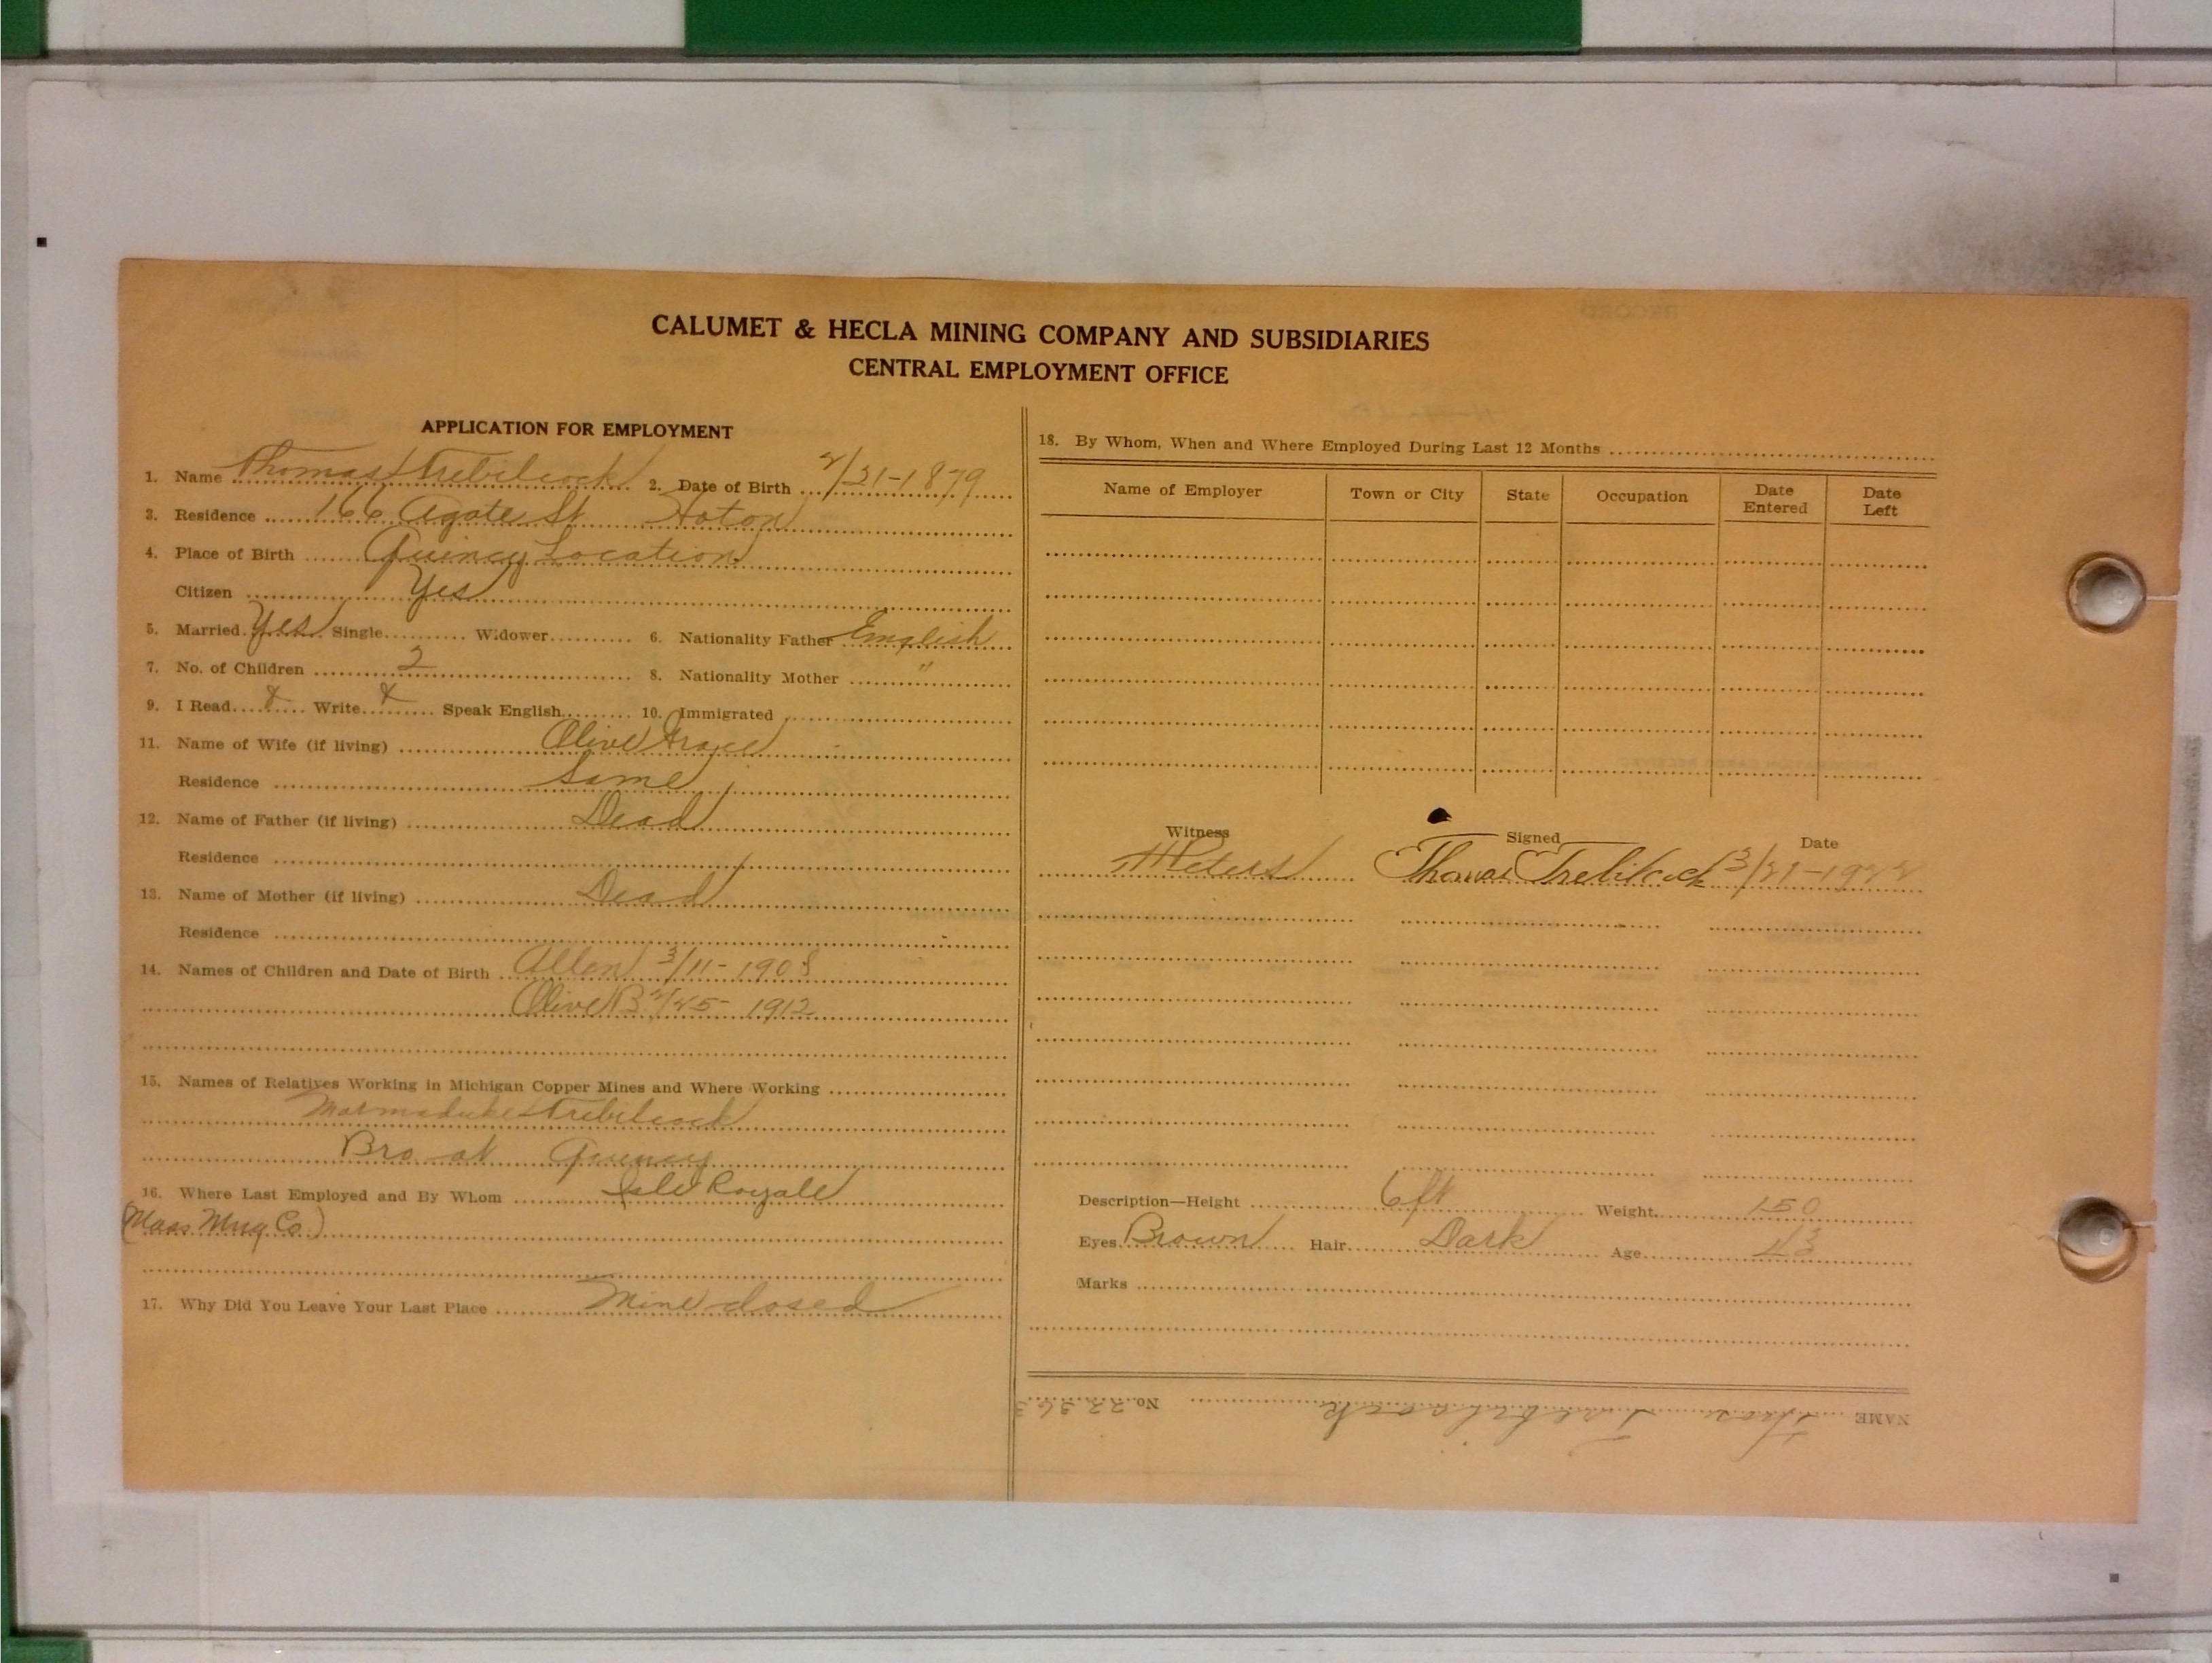 CALUMET & HECLA MINING COMPANY AND SUBSIDIARIES
CENTRAL EMPLOYMENT OFFICE
APPLICATION FOR EMPLOYMENT
1. Name Thomas Trebilcock 2. Date of Birth 2/21-1879
3. Residence 166 Agate St Hoton
4. Place of Birth Quincy Location
Citizen Yes
5. Married Yes Single Widower 6. Nationality Father English
7. No. of Children 2 8. Nationality Mother "
9. I Read x Write x Speak English 10. Immigrated
11. Name of Wife (if living) Olive Grace
Residence Same
12. Name of Father (if living) Dead
Residence
13. Name of Mother (if living) Dead
Residence
14. Names of Children and Date of Birth Allen 3/11-1908
Olive B 2/25-1912
15. Names of Relatives Working in Michigan Copper Mines and Where Working
Marmaduke Trebilcock
Bro at Quincy
16. Where Last Employed and By Whom Isle Royale
(Mass Mng Co.)
17. Why Did You Leave Your Last Place Mine closed
18. By Whom, When and Where Employed During Last 12 Months
Name of Employer Town or City State Occupation Date Entered Date Left
Witness Signed Date
Peters Thomas Trebilcock 3/21-1922
Description—Height 6 ft Weight 150
Eyes Brown Hair Dark Age 43
Marks
NAME Thos Trebilcock No. 22263